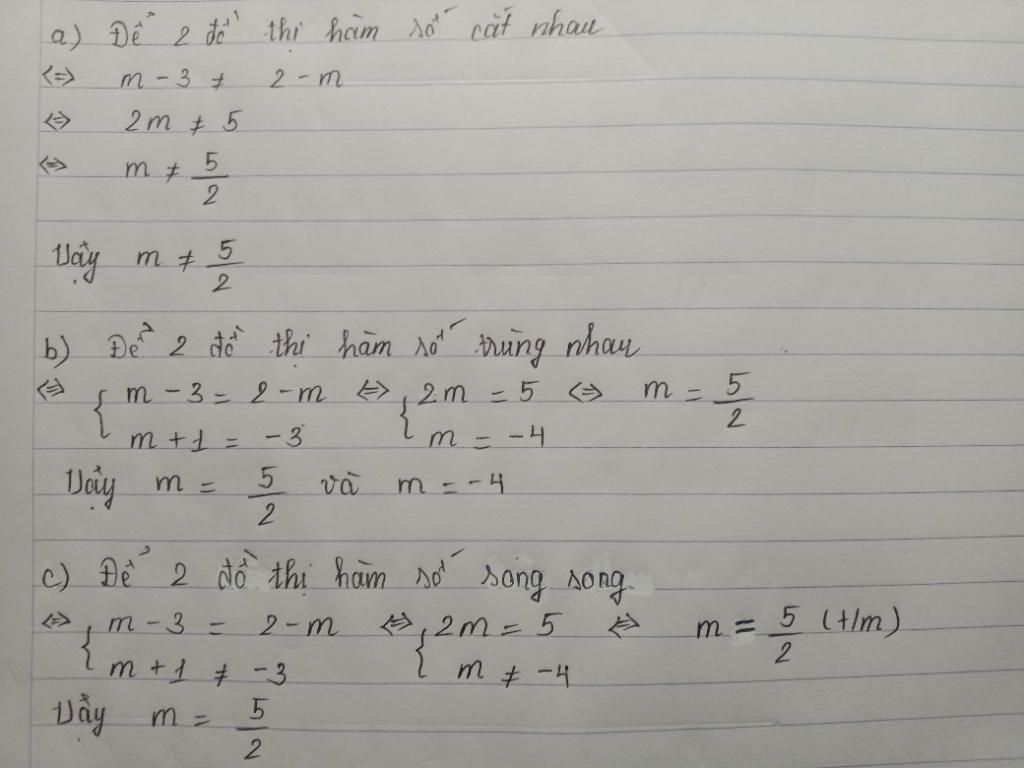 a) Để 2 đồ thị hàm số cắt nhau
<=> m - 3 ≠ 2 - m
<=> 2m ≠ 5
<=> m ≠ 5/2
Vậy m ≠ 5/2
b) Để 2 đồ thị hàm số trùng nhau
<=> { m - 3 = 2 - m <=> { 2m = 5 <=> m = 5/2
m + 1 = -3 m = -4
Vậy m = 5/2 và m = -4
c) Để 2 đồ thị hàm số song song
<=> { m - 3 = 2 - m <=> { 2m = 5 <=> m = 5/2 (t/m)
m + 1 ≠ -3 m ≠ -4
Vậy m = 5/2